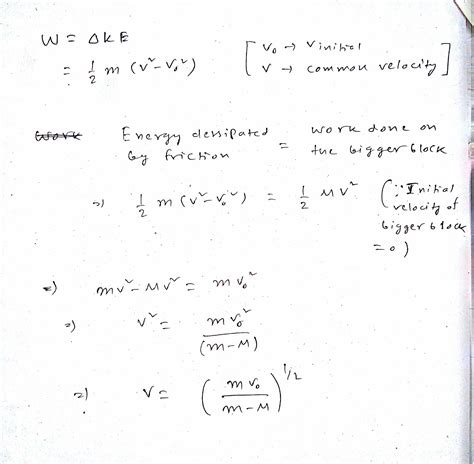 W = ΔKE [ v₀ → v initial
= 1/2 m (v² - v₀²) v → common velocity ]
Work Energy dessipated by friction = work done on the bigger block
=) 1/2 m (v² - v₀²) = 1/2 MV² (∵ Initial velocity of bigger block = 0)
=) mv² - Mv² = mv₀²
=) v² = mv₀² / (m-M)
=) v = (mv₀ / m-M)^1/2